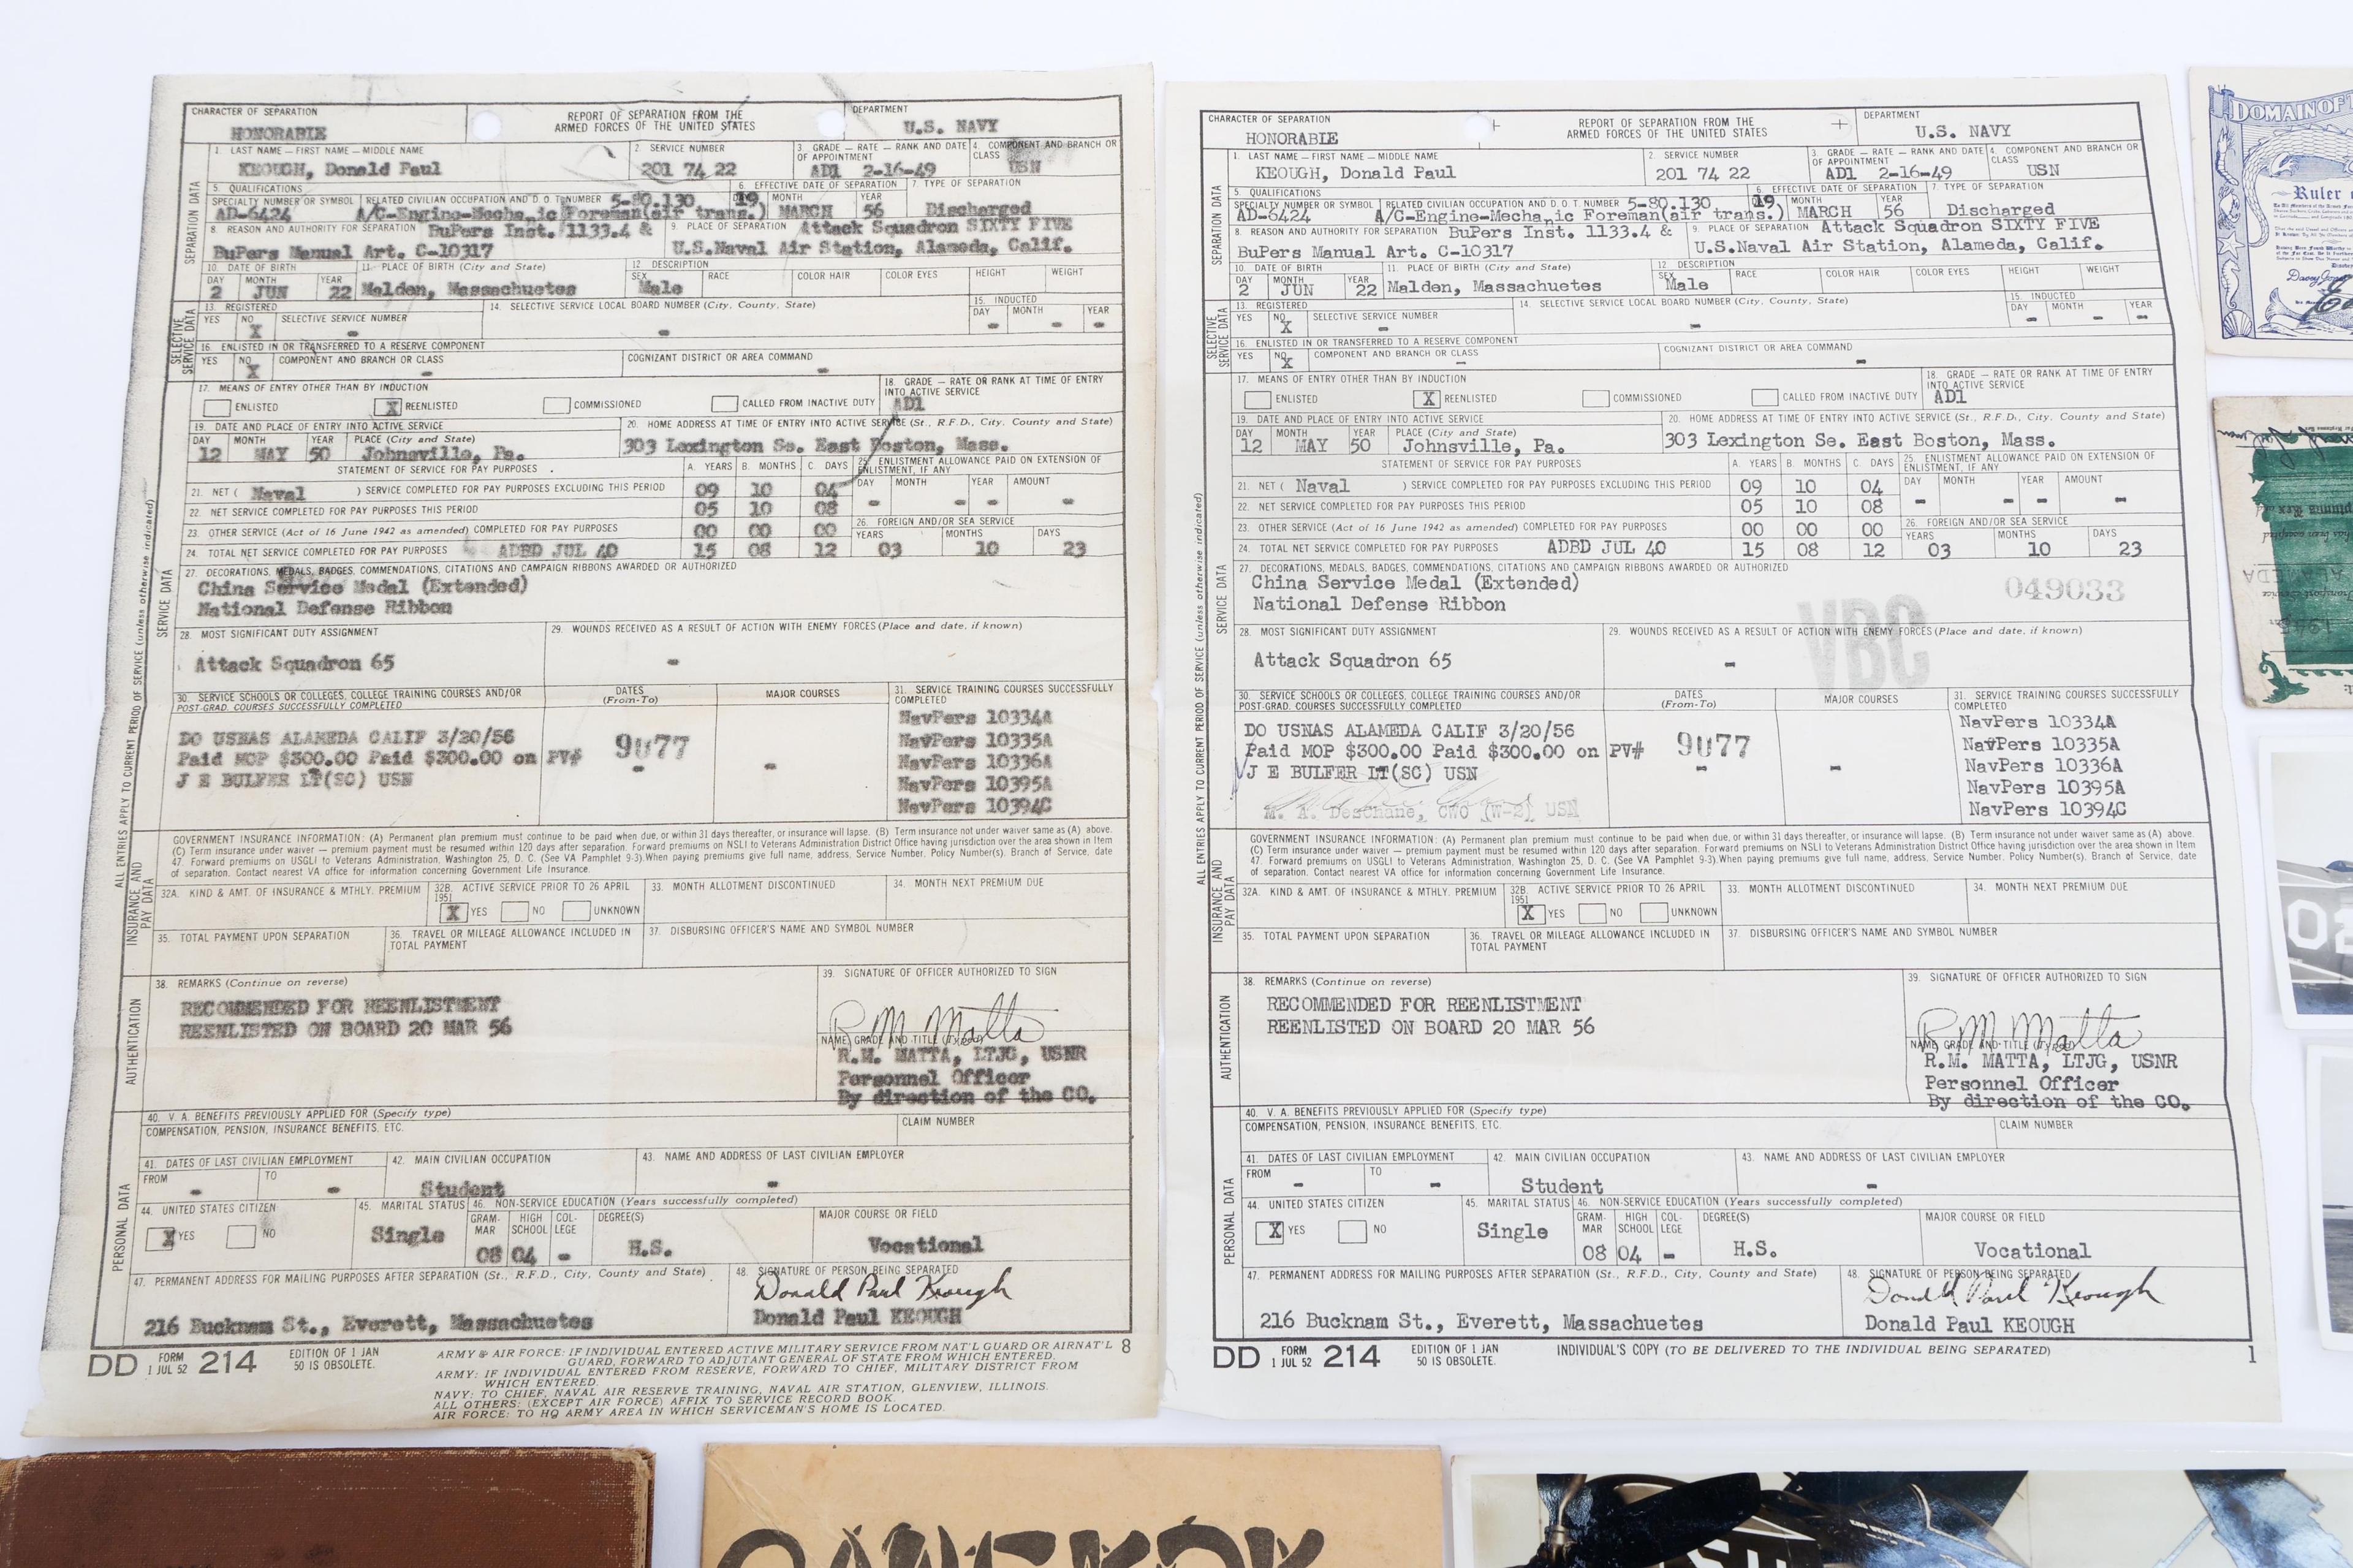 CHARACTER OF SEPARATION
HONORABLE
REPORT OF SEPARATION FROM THE
ARMED FORCES OF THE UNITED STATES
DEPARTMENT
U.S. NAVY
1. LAST NAME — FIRST NAME — MIDDLE NAME
KEOUGH, Donald Paul
2. SERVICE NUMBER
201 74 22
3. GRADE — RATE — RANK AND DATE OF APPOINTMENT
AD1 2-16-49
4. COMPONENT AND BRANCH OR CLASS
USN
SEPARATION DATA
5. QUALIFICATIONS
SPECIALTY NUMBER OR SYMBOL
AD-6424
RELATED CIVILIAN OCCUPATION AND D.O.T. NUMBER 5-80.130
A/C-Engine-Mechanic Foreman(air trans.)
6. EFFECTIVE DATE OF SEPARATION
DAY MONTH YEAR
19 MARCH 56
7. TYPE OF SEPARATION
Discharged
8. REASON AND AUTHORITY FOR SEPARATION BuPers Inst. 1133.4 &
BuPers Manual Art. C-10317
9. PLACE OF SEPARATION Attack Squadron SIXTY FIVE
U.S.Naval Air Station, Alameda, Calif.
10. DATE OF BIRTH
DAY MONTH YEAR
2 JUN 22
11. PLACE OF BIRTH (City and State)
Malden, Massachuetes
12 DESCRIPTION
SEX RACE COLOR HAIR COLOR EYES HEIGHT WEIGHT
Male
SELECTIVE SERVICE DATA
13. REGISTERED
YES NO SELECTIVE SERVICE NUMBER
X -
14. SELECTIVE SERVICE LOCAL BOARD NUMBER (City, County, State)
-
15. INDUCTED
DAY MONTH YEAR
- - -
16. ENLISTED IN OR TRANSFERRED TO A RESERVE COMPONENT
YES NO COMPONENT AND BRANCH OR CLASS
X -
COGNIZANT DISTRICT OR AREA COMMAND
-
17. MEANS OF ENTRY OTHER THAN BY INDUCTION
ENLISTED X REENLISTED COMMISSIONED CALLED FROM INACTIVE DUTY
18. GRADE — RATE OR RANK AT TIME OF ENTRY INTO ACTIVE SERVICE
AD1
19. DATE AND PLACE OF ENTRY INTO ACTIVE SERVICE
DAY MONTH YEAR PLACE (City and State)
12 MAY 50 Johnsville, Pa.
20. HOME ADDRESS AT TIME OF ENTRY INTO ACTIVE SERVICE (St., R.F.D., City, County and State)
303 Lexington Se. East Boston, Mass.
STATEMENT OF SERVICE FOR PAY PURPOSES
A. YEARS B. MONTHS C. DAYS
25. ENLISTMENT ALLOWANCE PAID ON EXTENSION OF ENLISTMENT, IF ANY
DAY MONTH YEAR AMOUNT
- - - -
21. NET ( Naval ) SERVICE COMPLETED FOR PAY PURPOSES EXCLUDING THIS PERIOD 09 10 04
22. NET SERVICE COMPLETED FOR PAY PURPOSES THIS PERIOD 05 10 08
23. OTHER SERVICE (Act of 16 June 1942 as amended) COMPLETED FOR PAY PURPOSES 00 00 00
24. TOTAL NET SERVICE COMPLETED FOR PAY PURPOSES ADBD JUL 40 15 08 12
26. FOREIGN AND/OR SEA SERVICE
YEARS MONTHS DAYS
03 10 23
SERVICE DATA
ALL ENTRIES APPLY TO CURRENT PERIOD OF SERVICE (unless otherwise indicated)
27. DECORATIONS, MEDALS, BADGES, COMMENDATIONS, CITATIONS AND CAMPAIGN RIBBONS AWARDED OR AUTHORIZED
China Service Medal (Extended)
National Defense Ribbon
28. MOST SIGNIFICANT DUTY ASSIGNMENT
Attack Squadron 65
29. WOUNDS RECEIVED AS A RESULT OF ACTION WITH ENEMY FORCES (Place and date, if known)
-
30. SERVICE SCHOOLS OR COLLEGES, COLLEGE TRAINING COURSES AND/OR
POST-GRAD. COURSES SUCCESSFULLY COMPLETED
DATES (From-To)
MAJOR COURSES
31. SERVICE TRAINING COURSES SUCCESSFULLY COMPLETED
DO USNAS ALAMEDA CALIF 3/20/56
Paid MOP $300.00 Paid $300.00 on PV# 9077
J E BULFER LT(SC) USN
- -
NavPers 10334A
NavPers 10335A
NavPers 10336A
NavPers 10395A
NavPers 10394C
INSURANCE AND PAY DATA
GOVERNMENT INSURANCE INFORMATION: (A) Permanent plan premium must continue to be paid when due, or within 31 days thereafter, or insurance will lapse. (B) Term insurance not under waiver same as (A) above.
(C) Term insurance under waiver — premium payment must be resumed within 120 days after separation. Forward premiums on NSLI to Veterans Administration District Office having jurisdiction over the area shown in Item
47. Forward premiums on USGLI to Veterans Administration, Washington 25, D. C. (See VA Pamphlet 9-3). When paying premiums give full name, address, Service Number, Policy Number(s), Branch of Service, date
of separation. Contact nearest VA office for information concerning Government Life Insurance.
32A. KIND & AMT. OF INSURANCE & MTHLY. PREMIUM
32B. ACTIVE SERVICE PRIOR TO 26 APRIL 1951
X YES NO UNKNOWN
33. MONTH ALLOTMENT DISCONTINUED
34. MONTH NEXT PREMIUM DUE
35. TOTAL PAYMENT UPON SEPARATION
36. TRAVEL OR MILEAGE ALLOWANCE INCLUDED IN TOTAL PAYMENT
37. DISBURSING OFFICER'S NAME AND SYMBOL NUMBER
AUTHENTICATION
38. REMARKS (Continue on reverse)
RECOMMENDED FOR REENLISTMENT
REENLISTED ON BOARD 20 MAR 56
39. SIGNATURE OF OFFICER AUTHORIZED TO SIGN
R. M. Matta
NAME, GRADE AND TITLE (Typed)
R.M. MATTA, LTJG, USNR
Personnel Officer
By direction of the CO.
PERSONAL DATA
40. V. A. BENEFITS PREVIOUSLY APPLIED FOR (Specify type)
COMPENSATION, PENSION, INSURANCE BENEFITS, ETC.
CLAIM NUMBER
41. DATES OF LAST CIVILIAN EMPLOYMENT
FROM - TO -
42. MAIN CIVILIAN OCCUPATION
Student
43. NAME AND ADDRESS OF LAST CIVILIAN EMPLOYER
-
44. UNITED STATES CITIZEN
X YES NO
45. MARITAL STATUS
Single
46. NON-SERVICE EDUCATION (Years successfully completed)
GRAM-MAR HIGH SCHOOL COL-LEGE DEGREE(S) MAJOR COURSE OR FIELD
08 04 - H.S. Vocational
47. PERMANENT ADDRESS FOR MAILING PURPOSES AFTER SEPARATION (St., R.F.D., City, County and State)
216 Bucknam St., Everett, Massachuetes
48. SIGNATURE OF PERSON BEING SEPARATED
Donald Paul Keough
Donald Paul KEOUGH
DD FORM 1 JUL 52 214
EDITION OF 1 JAN 50 IS OBSOLETE.
ARMY & AIR FORCE: IF INDIVIDUAL ENTERED ACTIVE MILITARY SERVICE FROM NAT'L GUARD OR AIRNAT'L
GUARD, FORWARD TO ADJUTANT GENERAL OF STATE FROM WHICH ENTERED.
ARMY: IF INDIVIDUAL ENTERED FROM RESERVE, FORWARD TO CHIEF, MILITARY DISTRICT FROM
WHICH ENTERED.
NAVY: TO CHIEF, NAVAL AIR RESERVE TRAINING, NAVAL AIR STATION, GLENVIEW, ILLINOIS.
ALL OTHERS: (EXCEPT AIR FORCE) AFFIX TO SERVICE RECORD BOOK.
AIR FORCE: TO HQ ARMY AREA IN WHICH SERVICEMAN'S HOME IS LOCATED.
8
CHARACTER OF SEPARATION
HONORABLE
REPORT OF SEPARATION FROM THE
ARMED FORCES OF THE UNITED STATES
DEPARTMENT
U.S. NAVY
1. LAST NAME — FIRST NAME — MIDDLE NAME
KEOUGH, Donald Paul
2. SERVICE NUMBER
201 74 22
3. GRADE — RATE — RANK AND DATE OF APPOINTMENT
AD1 2-16-49
4. COMPONENT AND BRANCH OR CLASS
USN
SEPARATION DATA
5. QUALIFICATIONS
SPECIALTY NUMBER OR SYMBOL
AD-6424
RELATED CIVILIAN OCCUPATION AND D.O.T. NUMBER 5-80.130
A/C-Engine-Mechanic Foreman(air trans.)
6. EFFECTIVE DATE OF SEPARATION
MONTH YEAR
19. MARCH 56
7. TYPE OF SEPARATION
Discharged
8. REASON AND AUTHORITY FOR SEPARATION BuPers Inst. 1133.4 &
BuPers Manual Art. C-10317
9. PLACE OF SEPARATION Attack Squadron SIXTY FIVE
U.S.Naval Air Station, Alameda, Calif.
10. DATE OF BIRTH
DAY MONTH YEAR
2 JUN 22
11. PLACE OF BIRTH (City and State)
Malden, Massachuetes
12 DESCRIPTION
SEX RACE COLOR HAIR COLOR EYES HEIGHT WEIGHT
Male
SELECTIVE SERVICE DATA
13. REGISTERED
YES NO SELECTIVE SERVICE NUMBER
X -
14. SELECTIVE SERVICE LOCAL BOARD NUMBER (City, County, State)
-
15. INDUCTED
DAY MONTH YEAR
- - -
16. ENLISTED IN OR TRANSFERRED TO A RESERVE COMPONENT
YES NO COMPONENT AND BRANCH OR CLASS
X -
COGNIZANT DISTRICT OR AREA COMMAND
-
17. MEANS OF ENTRY OTHER THAN BY INDUCTION
ENLISTED X REENLISTED COMMISSIONED CALLED FROM INACTIVE DUTY
18. GRADE — RATE OR RANK AT TIME OF ENTRY INTO ACTIVE SERVICE
AD1
19. DATE AND PLACE OF ENTRY INTO ACTIVE SERVICE
DAY MONTH YEAR PLACE (City and State)
12 MAY 50 Johnsville, Pa.
20. HOME ADDRESS AT TIME OF ENTRY INTO ACTIVE SERVICE (St., R.F.D., City, County and State)
303 Lexington Se. East Boston, Mass.
STATEMENT OF SERVICE FOR PAY PURPOSES
A. YEARS B. MONTHS C. DAYS
25. ENLISTMENT ALLOWANCE PAID ON EXTENSION OF ENLISTMENT, IF ANY
DAY MONTH YEAR AMOUNT
- - - -
21. NET ( Naval ) SERVICE COMPLETED FOR PAY PURPOSES EXCLUDING THIS PERIOD 09 10 04
22. NET SERVICE COMPLETED FOR PAY PURPOSES THIS PERIOD 05 10 08
23. OTHER SERVICE (Act of 16 June 1942 as amended) COMPLETED FOR PAY PURPOSES 00 00 00
24. TOTAL NET SERVICE COMPLETED FOR PAY PURPOSES ADBD JUL 40 15 08 12
26. FOREIGN AND/OR SEA SERVICE
YEARS MONTHS DAYS
03 10 23
SERVICE DATA
ALL ENTRIES APPLY TO CURRENT PERIOD OF SERVICE (unless otherwise indicated)
27. DECORATIONS, MEDALS, BADGES, COMMENDATIONS, CITATIONS AND CAMPAIGN RIBBONS AWARDED OR AUTHORIZED
China Service Medal (Extended)
National Defense Ribbon
049033
VBC
28. MOST SIGNIFICANT DUTY ASSIGNMENT
Attack Squadron 65
29. WOUNDS RECEIVED AS A RESULT OF ACTION WITH ENEMY FORCES (Place and date, if known)
-
30. SERVICE SCHOOLS OR COLLEGES, COLLEGE TRAINING COURSES AND/OR
POST-GRAD. COURSES SUCCESSFULLY COMPLETED
DATES (From-To)
MAJOR COURSES
31. SERVICE TRAINING COURSES SUCCESSFULLY COMPLETED
DO USNAS ALAMEDA CALIF 3/20/56
Paid MOP $300.00 Paid $300.00 on PV# 9077
J E BULFER LT(SC) USN
M. A. Deschane, CWO (W-2) USN
- -
NavPers 10334A
NavPers 10335A
NavPers 10336A
NavPers 10395A
NavPers 10394C
INSURANCE AND PAY DATA
GOVERNMENT INSURANCE INFORMATION: (A) Permanent plan premium must continue to be paid when due, or within 31 days thereafter, or insurance will lapse. (B) Term insurance not under waiver same as (A) above.
(C) Term insurance under waiver — premium payment must be resumed within 120 days after separation. Forward premiums on NSLI to Veterans Administration District Office having jurisdiction over the area shown in Item
47. Forward premiums on USGLI to Veterans Administration, Washington 25, D. C. (See VA Pamphlet 9-3). When paying premiums give full name, address, Service Number, Policy Number(s), Branch of Service, date
of separation. Contact nearest VA office for information concerning Government Life Insurance.
32A. KIND & AMT. OF INSURANCE & MTHLY. PREMIUM
32B. ACTIVE SERVICE PRIOR TO 26 APRIL 1951
X YES NO UNKNOWN
33. MONTH ALLOTMENT DISCONTINUED
34. MONTH NEXT PREMIUM DUE
35. TOTAL PAYMENT UPON SEPARATION
36. TRAVEL OR MILEAGE ALLOWANCE INCLUDED IN TOTAL PAYMENT
37. DISBURSING OFFICER'S NAME AND SYMBOL NUMBER
AUTHENTICATION
38. REMARKS (Continue on reverse)
RECOMMENDED FOR REENLISTMENT
REENLISTED ON BOARD 20 MAR 56
39. SIGNATURE OF OFFICER AUTHORIZED TO SIGN
R. M. Matta
NAME, GRADE AND TITLE (Typed)
R.M. MATTA, LTJG, USNR
Personnel Officer
By direction of the CO.
PERSONAL DATA
40. V. A. BENEFITS PREVIOUSLY APPLIED FOR (Specify type)
COMPENSATION, PENSION, INSURANCE BENEFITS, ETC.
CLAIM NUMBER
41. DATES OF LAST CIVILIAN EMPLOYMENT
FROM - TO -
42. MAIN CIVILIAN OCCUPATION
Student
43. NAME AND ADDRESS OF LAST CIVILIAN EMPLOYER
-
44. UNITED STATES CITIZEN
X YES NO
45. MARITAL STATUS
Single
46. NON-SERVICE EDUCATION (Years successfully completed)
GRAM-MAR HIGH SCHOOL COL-LEGE DEGREE(S) MAJOR COURSE OR FIELD
08 04 - H.S. Vocational
47. PERMANENT ADDRESS FOR MAILING PURPOSES AFTER SEPARATION (St., R.F.D., City, County and State)
216 Bucknam St., Everett, Massachuetes
48. SIGNATURE OF PERSON BEING SEPARATED
Donald Paul Keough
Donald Paul KEOUGH
DD FORM 1 JUL 52 214
EDITION OF 1 JAN 50 IS OBSOLETE.
INDIVIDUAL'S COPY (TO BE DELIVERED TO THE INDIVIDUAL BEING SEPARATED)
1
DOMAIN OF
Ruler
Davy Jones
ALAMEDA
02
BANGKOK